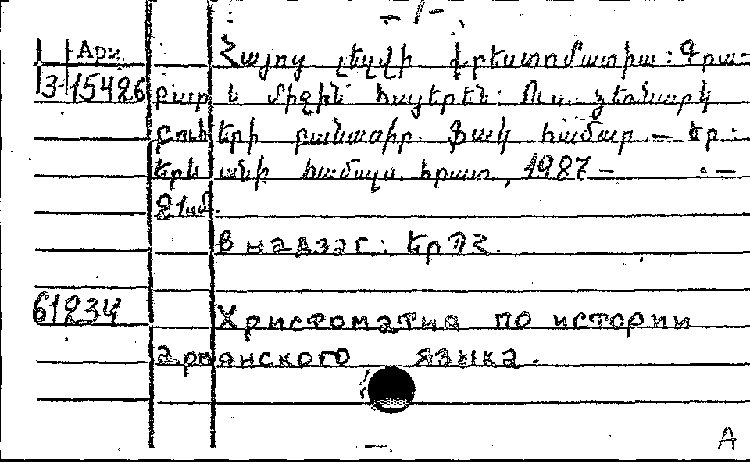 - 1 -
Арм Հայոց լեզվի քրեստոմատիա: Գրա-
3-15486 բար և միջին հայերեն: Ուս. ձեռնարկ
բուհերի բանասիր. ֆակ. համար. — Եր.:
Երևանի համալս. հրատ., 1987 —
21սմ.
В надзаг.: ԵրՊՀ.
61234 Христоматия по истории
армянского языка.
А